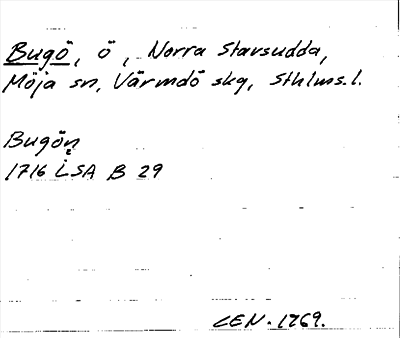 Bugö, ö, Norra Stavsudda,
Möja sn, Värmdö skg, Sthlms.l.
Bugön
1716 LSA B 29
CEN. 1969.